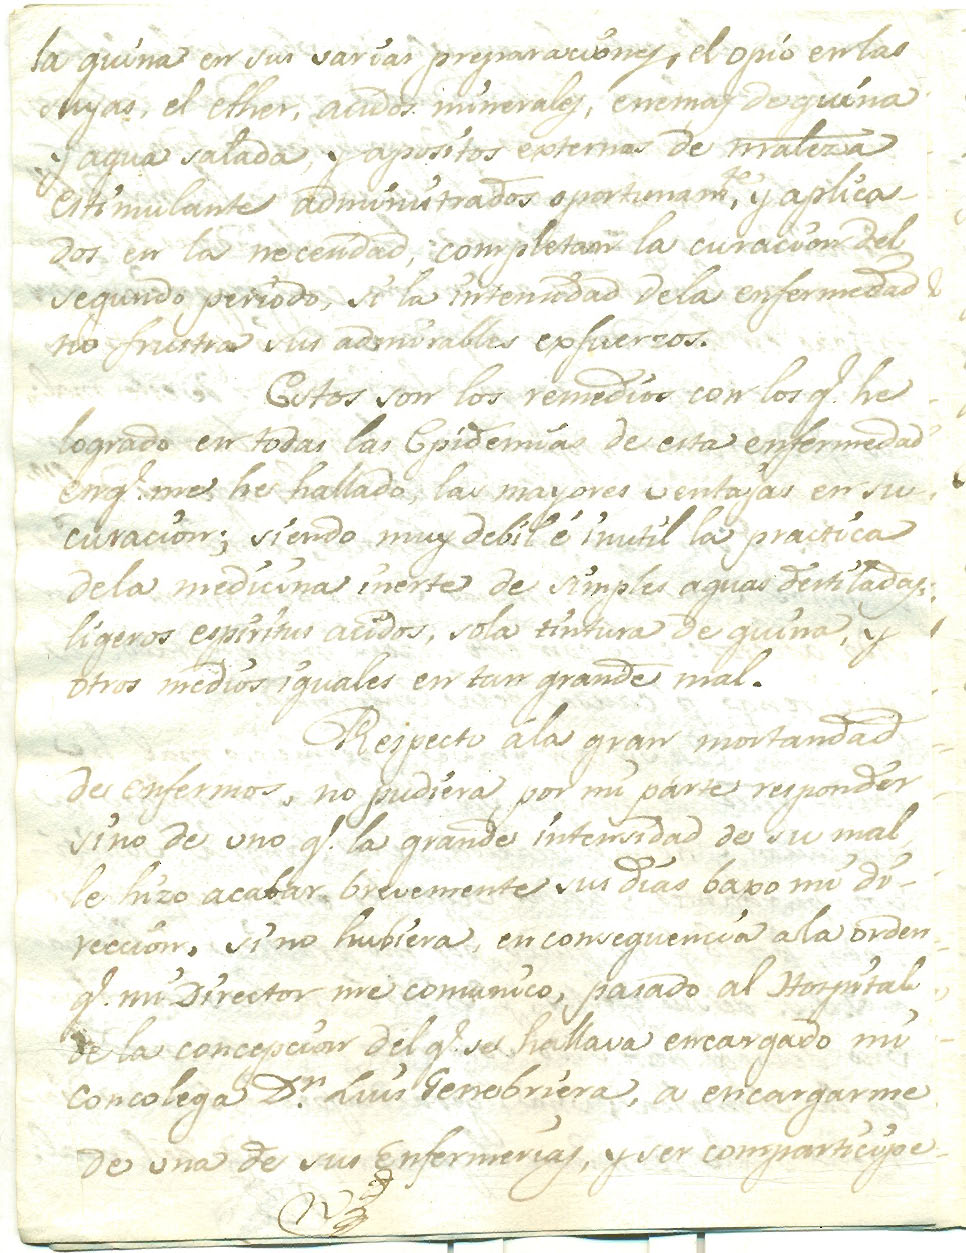 la quina en sus varias preparaciones, el opio en las
suyas, el ether, acidos minerales, enemas de quina
y agua salada, y apositos externos de nraleza
estimulante administrados oportunamte, y aplica-
dos en la necesidad, completan la curacion del
segundo periodo, si la intensidad dela enfermedad
no frustra sus admirables exfuerzos.
Estos son los remedios con los q.e he
logrado en todas las Epidemias de esta enfermedad
en q.e me he hallado, las mayores ventajas en su
curacion; siendo muy debil é inutil la practica
dela medicina inerte de simples aguas destiladas,
ligeros espiritus acidos, sola tintura de quina, y
otros medios iguales en tan grande mal.
Respecto ala gran mortandad
de enfermos, no pudiera por mi parte responder
sino de uno q.e la grande intensidad de su mal
le hizo acabar brevemente sus dias baxo mi di-
reccion, si no hubiera, en consequencia a la orden
q.e mi Director me comunico, pasado al Hospital
de la concepcion del q.e se hallava encargado mi
concolega Dn. Luis Genebriera, a encargarme
de una de sus enfermerias, y ser comparticipe